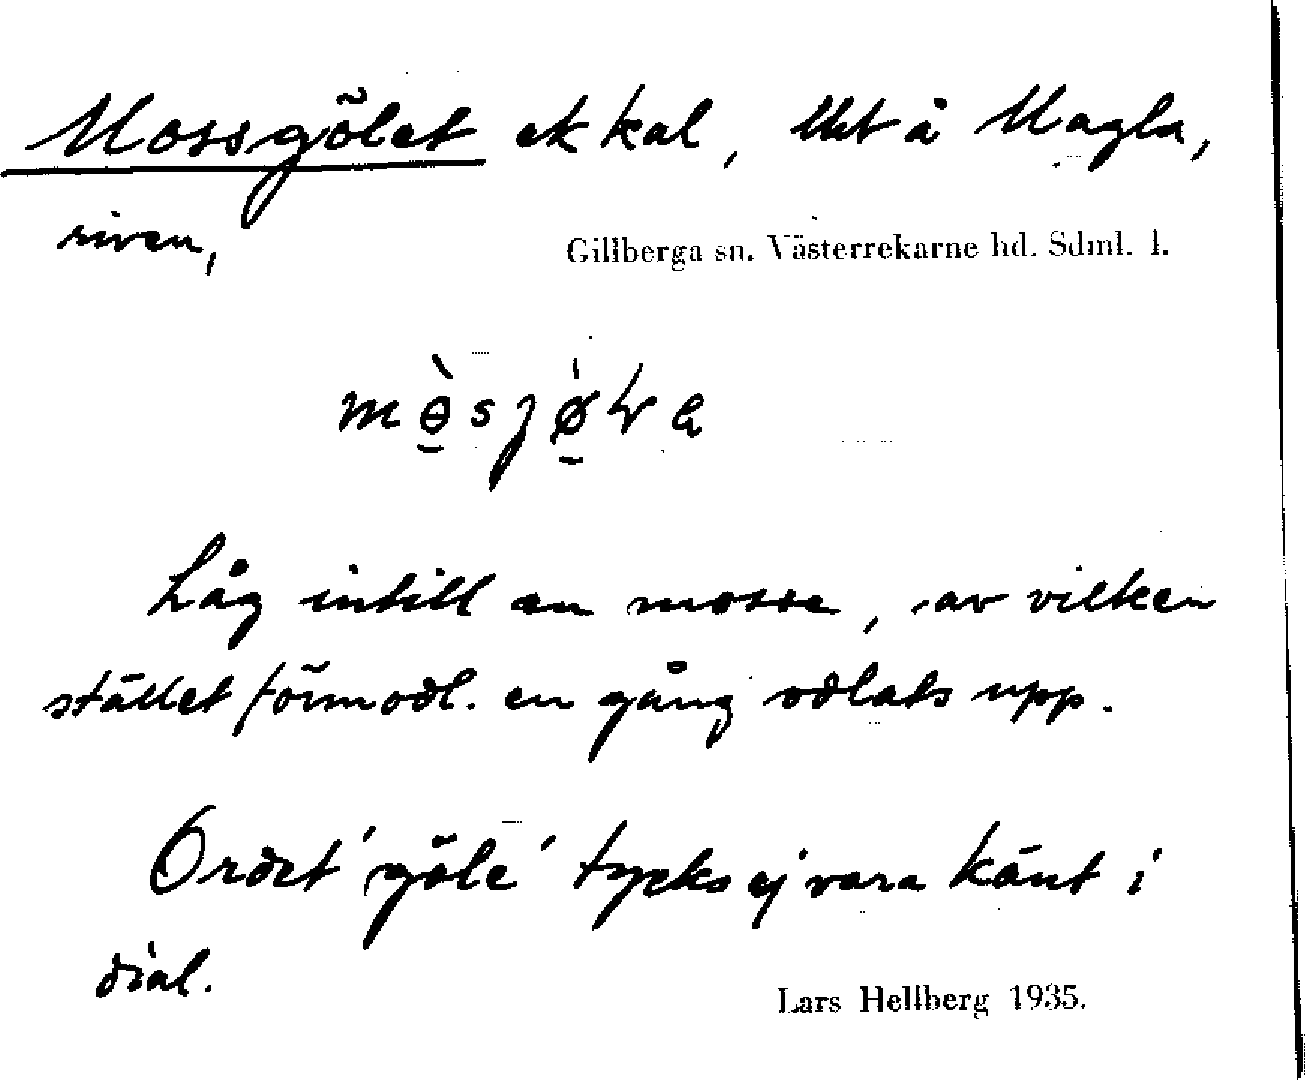 Mossgölet ek kal, Utt å Magla,
riven,
Gillberga sn. Västerrekarne hd. Sdml. l.
Låg intill en mosse, av vilken
stället förmodl. en gång odlats upp.
Ordet 'göle' tycks ej vara känt i
dial.
Lars Hellberg 1935.